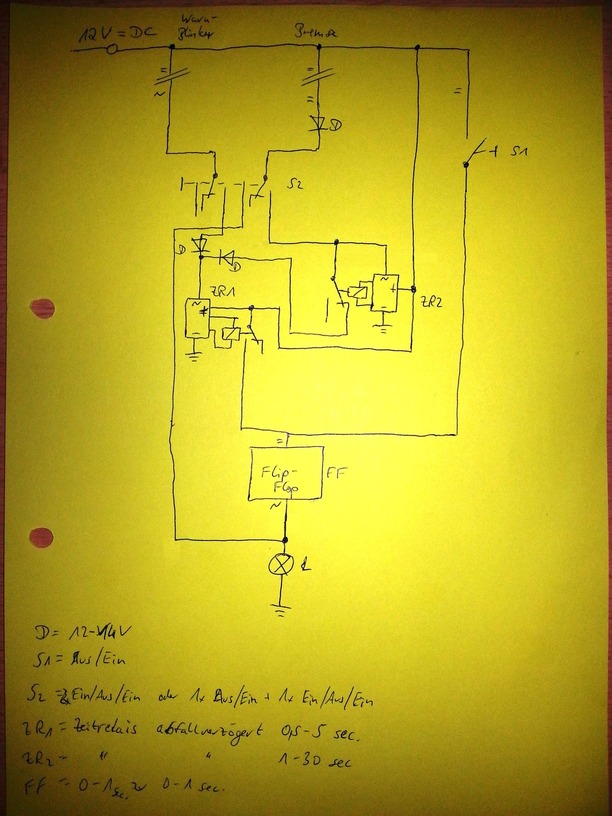 12V = DC
Warn-
Blinker
Bremse
D
S1
S2
D
D
ZR1
ZR2
Flip-
Flop
FF
L
D = 12-14V
S1 = Aus/Ein
S2 = Ein/Aus/Ein oder 1x Aus/Ein + 1x Ein/Aus/Ein
ZR1 = Zeitrelais abfallverzögert 0,5-5 sec.
ZR2 = " " 1-30 sec
FF = 0-1 sec. zu 0-1 sec.